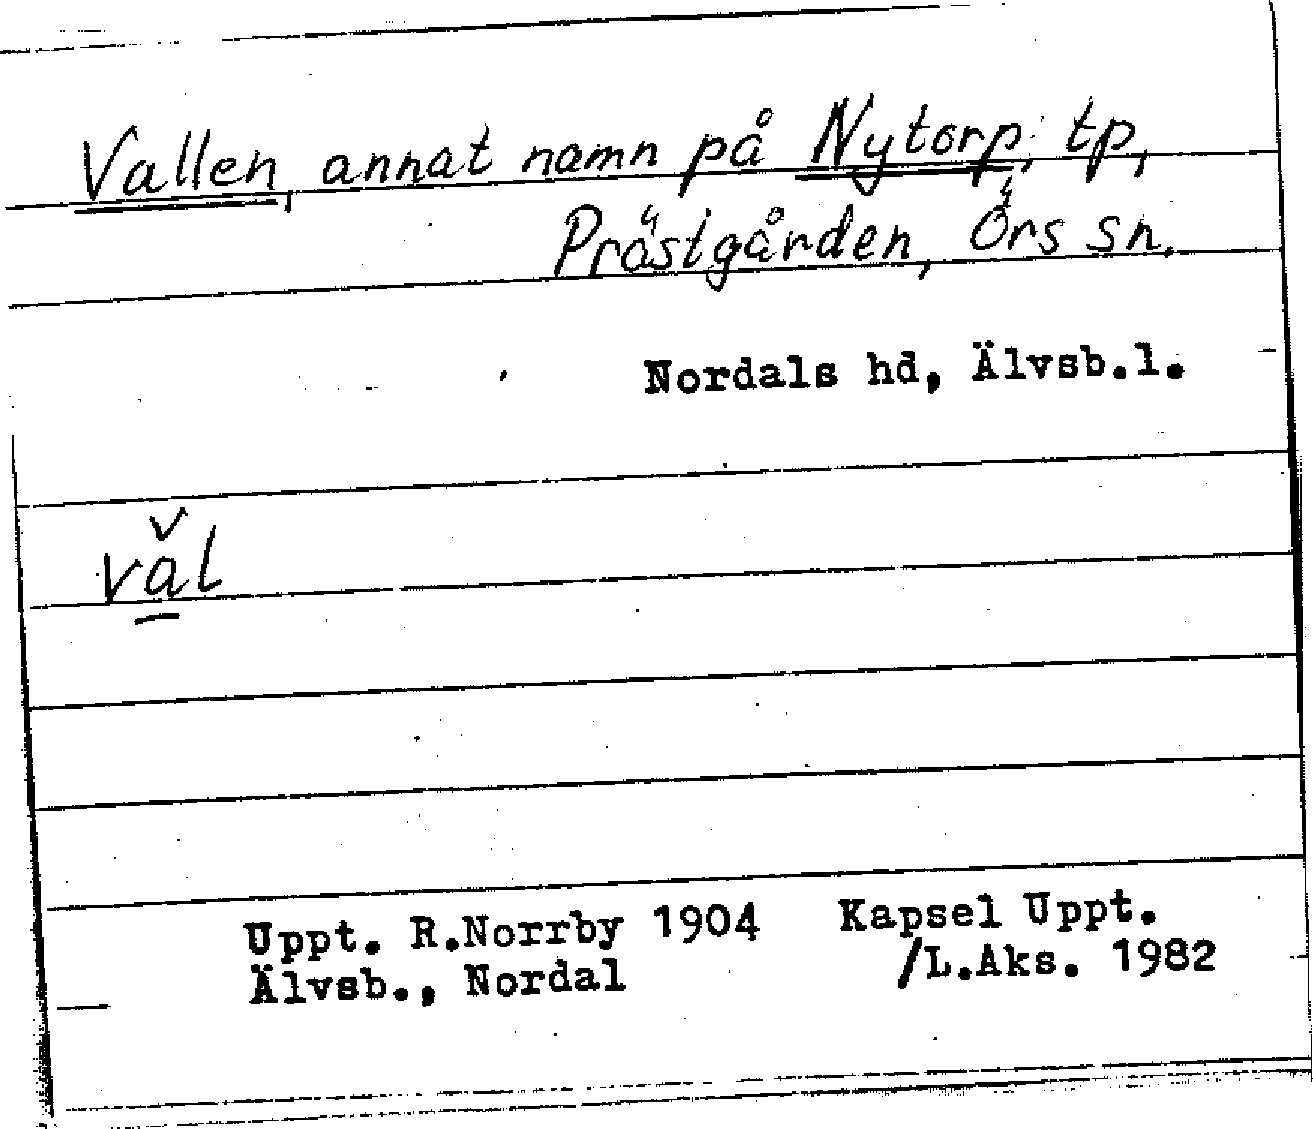 Vallen, annat namn på Nytorp, tp,
Prästgården, Örs sn.
Nordals hd, Älvsb.l.
vǎ̱l
Uppt. R.Norrby 1904 Kapsel Uppt.
Älvsb., Nordal /L.Aks. 1982